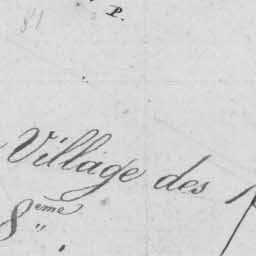 P.
Village des
8ème "